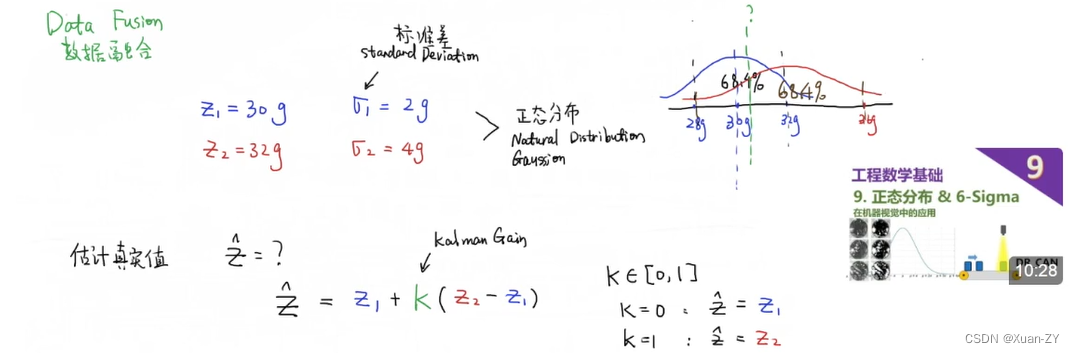 Data Fusion
数据融合
标准差
Standard Deviation
z₁ = 30g
σ₁ = 2g
z₂ = 32g
σ₂ = 4g
正态分布
Natural Distribution
Gaussion
?
68.4%
68.4%
28g
30g
32g
36g
工程数学基础
9
9. 正态分布 & 6-Sigma
在机器视觉中的应用
DR CAN
10:28
估计真实值
ẑ = ?
Kalman Gain
ẑ = z₁ + k(z₂ - z₁)
k∈[0,1]
k=0 : ẑ = z₁
k=1 : ẑ = z₂
CSDN @Xuan-ZY